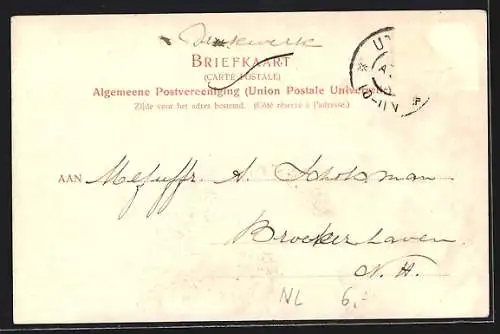 Drukwerk
BRIEFKAART
(CARTE POSTALE)
Algemeene Postvereeniging (Union Postale Universelle)
Zijde voor het adres bestemd. (Côté réservé à l'adresse.)
AAN Mejuffr. A. Scholsman
Broekerhaven.
N.H.
NL 6,-